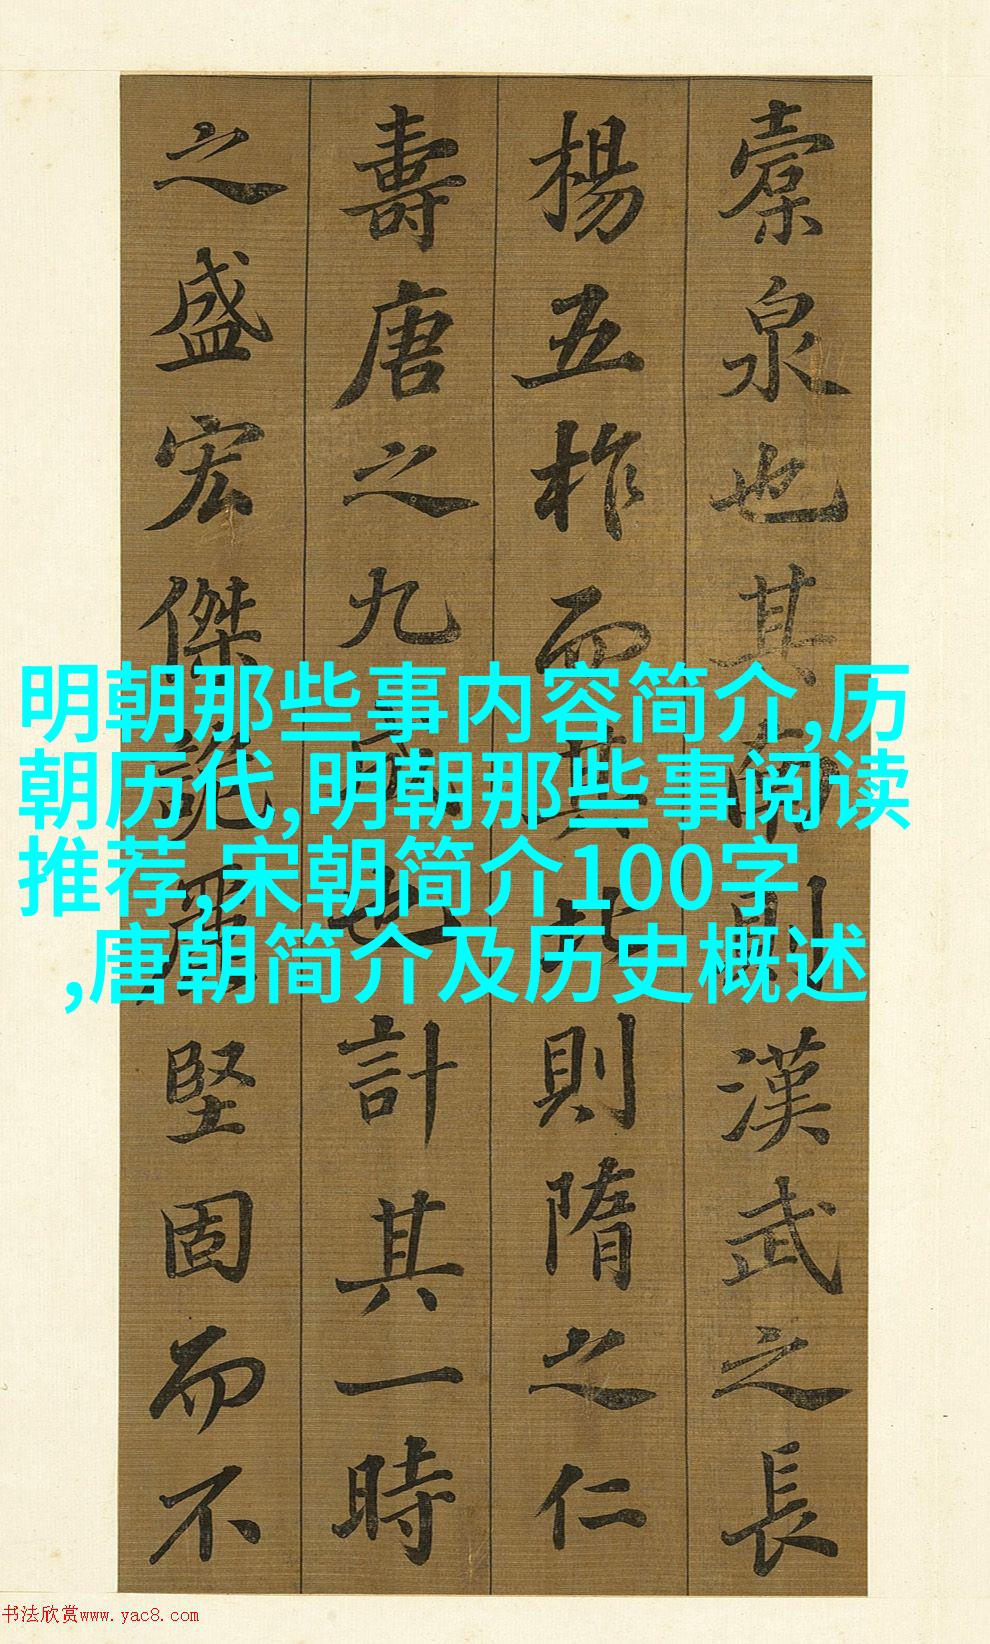 橐泉也其南則漢武之長
楊五柞而其北則隋之仁
壽唐之九成也計其一時
之盛宏傑詭麗堅固而不
明朝那些事内容简介,历
朝历代,明朝那些事阅读
推荐,宋朝简介100字
,唐朝简介及历史概述
书法欣赏www.yac8.com